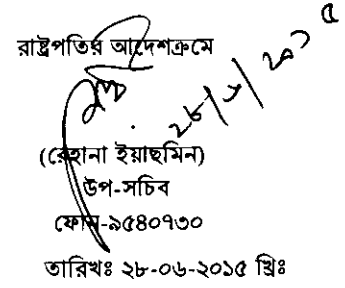 রাষ্ট্রপতির আদেশক্রমে
২৮/৬/২০১৫
(রেহানা ইয়াছমিন)
উপ-সচিব
ফোন-৯৫৪০৭৩০
তারিখঃ ২৮-০৬-২০১৫ খ্রিঃ